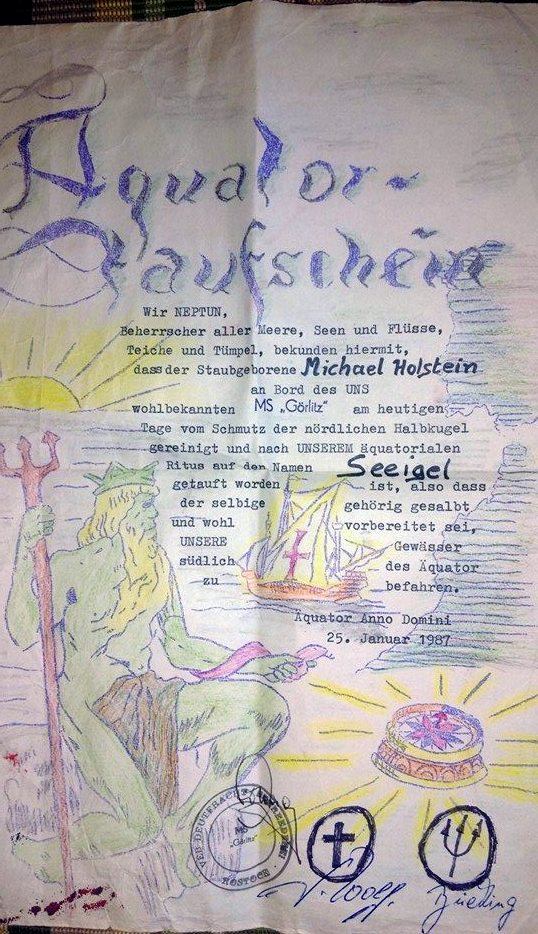 Äquator-
Taufschein
Wir NEPTUN,
Beherrscher aller Meere, Seen und Flüsse,
Teiche und Tümpel, bekunden hiermit,
dass der Staubgeborene Michael Holstein
an Bord des UNS
wohlbekannten MS „Görlitz" am heutigen
Tage vom Schmutz der nördlichen Halbkugel
gereinigt und nach UNSEREM äquatorialen
Ritus auf den Namen Seeigel
getauft worden ist, also dass
der selbige gehörig gesalbt
und wohl vorbereitet sei,
UNSERE Gewässer
südlich des Äquator
zu befahren.
Äquator Anno Domini
25. Januar 1987
VEB DEUTFRACHT/SEEREEDEREI
MS
„Görlitz"
ROSTOCK